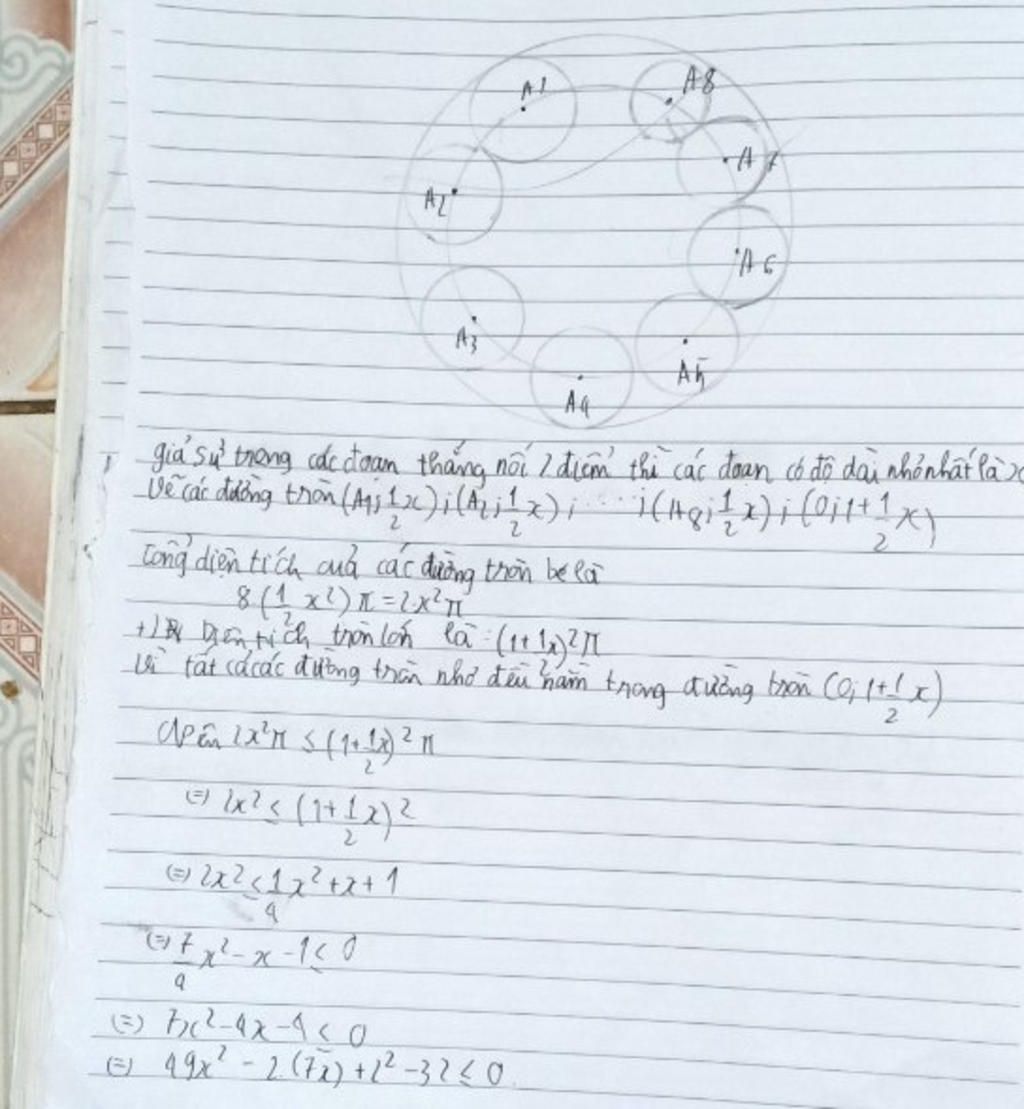 A1
A8
A7
A2
A6
A3
A5
A4
giả sử trong các đoạn thẳng nối 2 điểm thì các đoạn có độ dài nhỏ nhất là x
Vẽ các đường tròn (A1; 1/2 x); (A2; 1/2 x); .....; (A8; 1/2 x); (O; 1 + 1/2 x)
tổng diện tích cuả các đường tròn bé là
8(1/2 x²)π = 2x²π
+) Diện tích tròn lớn là: (1 + 1/2 x)²π
Vì tất cả các đường tròn nhỏ đều nằm trong đường tròn (O; 1 + 1/2 x)
Nên 2x²π ≤ (1 + 1/2 x)²π
(=) 2x² ≤ (1 + 1/2 x)²
(=) 2x² ≤ 1/4 x² + x + 1
(=) 7/4 x² - x - 1 ≤ 0
(=) 7x² - 4x - 4 ≤ 0
(=) 49x² - 2.(7x) + 2² - 32 ≤ 0